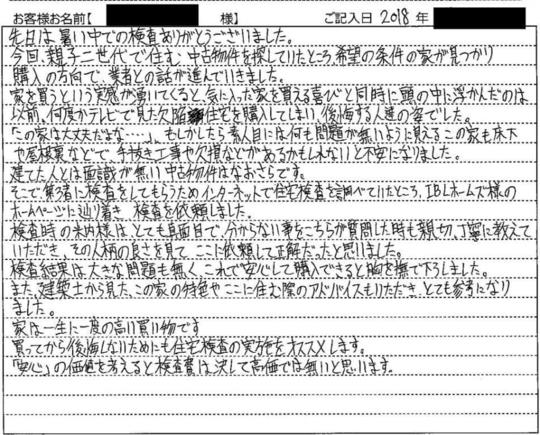 お客様お名前【 様】 ご記入日 2018 年
先日は暑い中での検査ありがとうございました。
今回、親子二世代で住む中古物件を探していたところ、希望の条件の家が見つかり
購入の方向で、業者との話が進んでいきました。
家を買うという実感が湧いてくると、気に入った家を買える喜びと同時に頭の中に浮かんだのは
以前、何度かテレビで見た欠陥住宅を購入してしまい、後悔する人達の姿でした。
「この家は大丈夫だよな‥‥」、もしかしたら素人目には何も問題が無いように見えるこの家も床下
や屋根裏などで、手抜き工事や欠損などがあるかもしれないと不安になりました。
建てた人とは面識が無い中古物件はなおさらです。
そこで第3者に検査をしてもらうためインターネットで住宅検査を調べていたところ、IBLホームズ様の
ホームページに辿り着き、検査を依頼しました。
検査時の米内様はとても真面目で、分からない事をこちらが質問した時も親切、丁寧に教えて
いただき、その人柄の良さを見て、ここに依頼して正解だったと思いました。
検査結果は大きな問題も無く、これで安心して購入できると胸を撫で下ろしました。
また、建築士から見た、この家の特色やここに住む際のアドバイスもいただき、とても参考になり
ました。
家は一生に一度の高い買い物です
買ってから後悔しないためにも住宅検査の実施をオススメします。
「安心」の価値を考えると検査費は決して高価では無いと思います。